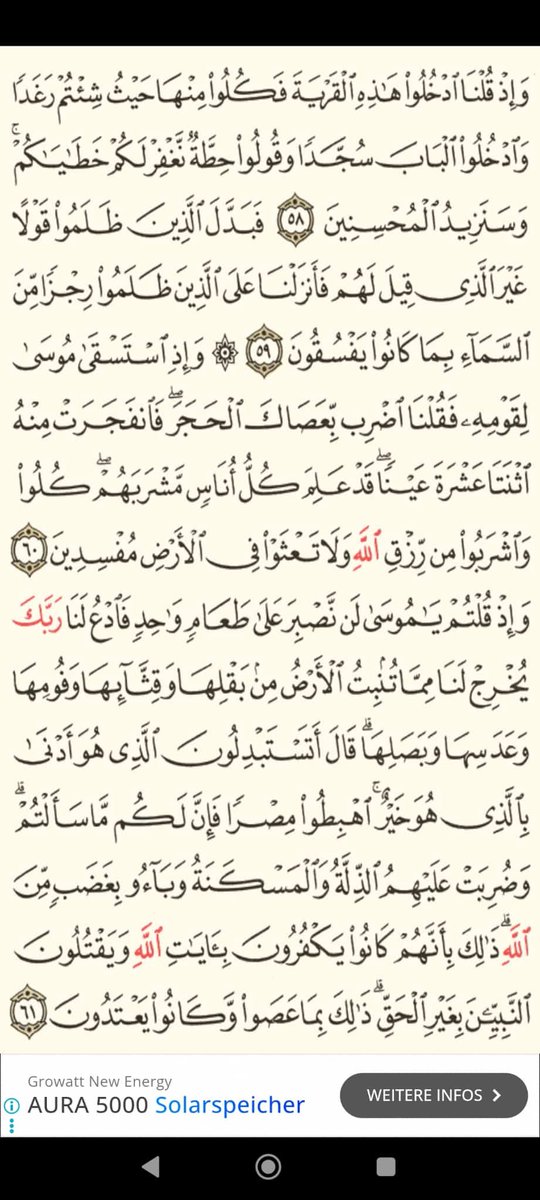 وَإِذْ قُلْنَا ٱدْخُلُوا۟ هَٰذِهِ ٱلْقَرْيَةَ فَكُلُوا۟ مِنْهَا حَيْثُ شِئْتُمْ رَغَدًا
وَٱدْخُلُوا۟ ٱلْبَابَ سُجَّدًا وَقُولُوا۟ حِطَّةٌ نَّغْفِرْ لَكُمْ خَطَٰيَٰكُمْ ۚ
وَسَنَزِيدُ ٱلْمُحْسِنِينَ ٥٨ فَبَدَّلَ ٱلَّذِينَ ظَلَمُوا۟ قَوْلًا
غَيْرَ ٱلَّذِى قِيلَ لَهُمْ فَأَنزَلْنَا عَلَى ٱلَّذِينَ ظَلَمُوا۟ رِجْزًا مِّنَ
ٱلسَّمَآءِ بِمَا كَانُوا۟ يَفْسُقُونَ ٥٩ ۞ وَإِذِ ٱسْتَسْقَىٰ مُوسَىٰ
لِقَوْمِهِۦ فَقُلْنَا ٱضْرِب بِّعَصَاكَ ٱلْحَجَرَ ۖ فَٱنفَجَرَتْ مِنْهُ
ٱثْنَتَا عَشْرَةَ عَيْنًا ۖ قَدْ عَلِمَ كُلُّ أُنَاسٍ مَّشْرَبَهُمْ ۖ كُلُوا۟
وَٱشْرَبُوا۟ مِن رِّزْقِ ٱللَّهِ وَلَا تَعْثَوْا۟ فِى ٱلْأَرْضِ مُفْسِدِينَ ٦٠
وَإِذْ قُلْتُمْ يَٰمُوسَىٰ لَن نَّصْبِرَ عَلَىٰ طَعَامٍ وَٰحِدٍ فَٱدْعُ لَنَا رَبَّكَ
يُخْرِجْ لَنَا مِمَّا تُنۢبِتُ ٱلْأَرْضُ مِنۢ بَقْلِهَا وَقِثَّآئِهَا وَفُومِهَا
وَعَدَسِهَا وَبَصَلِهَا ۖ قَالَ أَتَسْتَبْدِلُونَ ٱلَّذِى هُوَ أَدْنَىٰ
بِٱلَّذِى هُوَ خَيْرٌ ۚ ٱهْبِطُوا۟ مِصْرًا فَإِنَّ لَكُم مَّا سَأَلْتُمْ ۗ
وَضُرِبَتْ عَلَيْهِمُ ٱلذِّلَّةُ وَٱلْمَسْكَنَةُ وَبَآءُو بِغَضَبٍ مِّنَ
ٱللَّهِ ۗ ذَٰلِكَ بِأَنَّهُمْ كَانُوا۟ يَكْفُرُونَ بِـَٔايَٰتِ ٱللَّهِ وَيَقْتُلُونَ
ٱلنَّبِيِّـۧنَ بِغَيْرِ ٱلْحَقِّ ۗ ذَٰلِكَ بِمَا عَصَوا۟ وَّكَانُوا۟ يَعْتَدُونَ ٦١
Growatt New Energy
AURA 5000 Solarspeicher
WEITERE INFOS